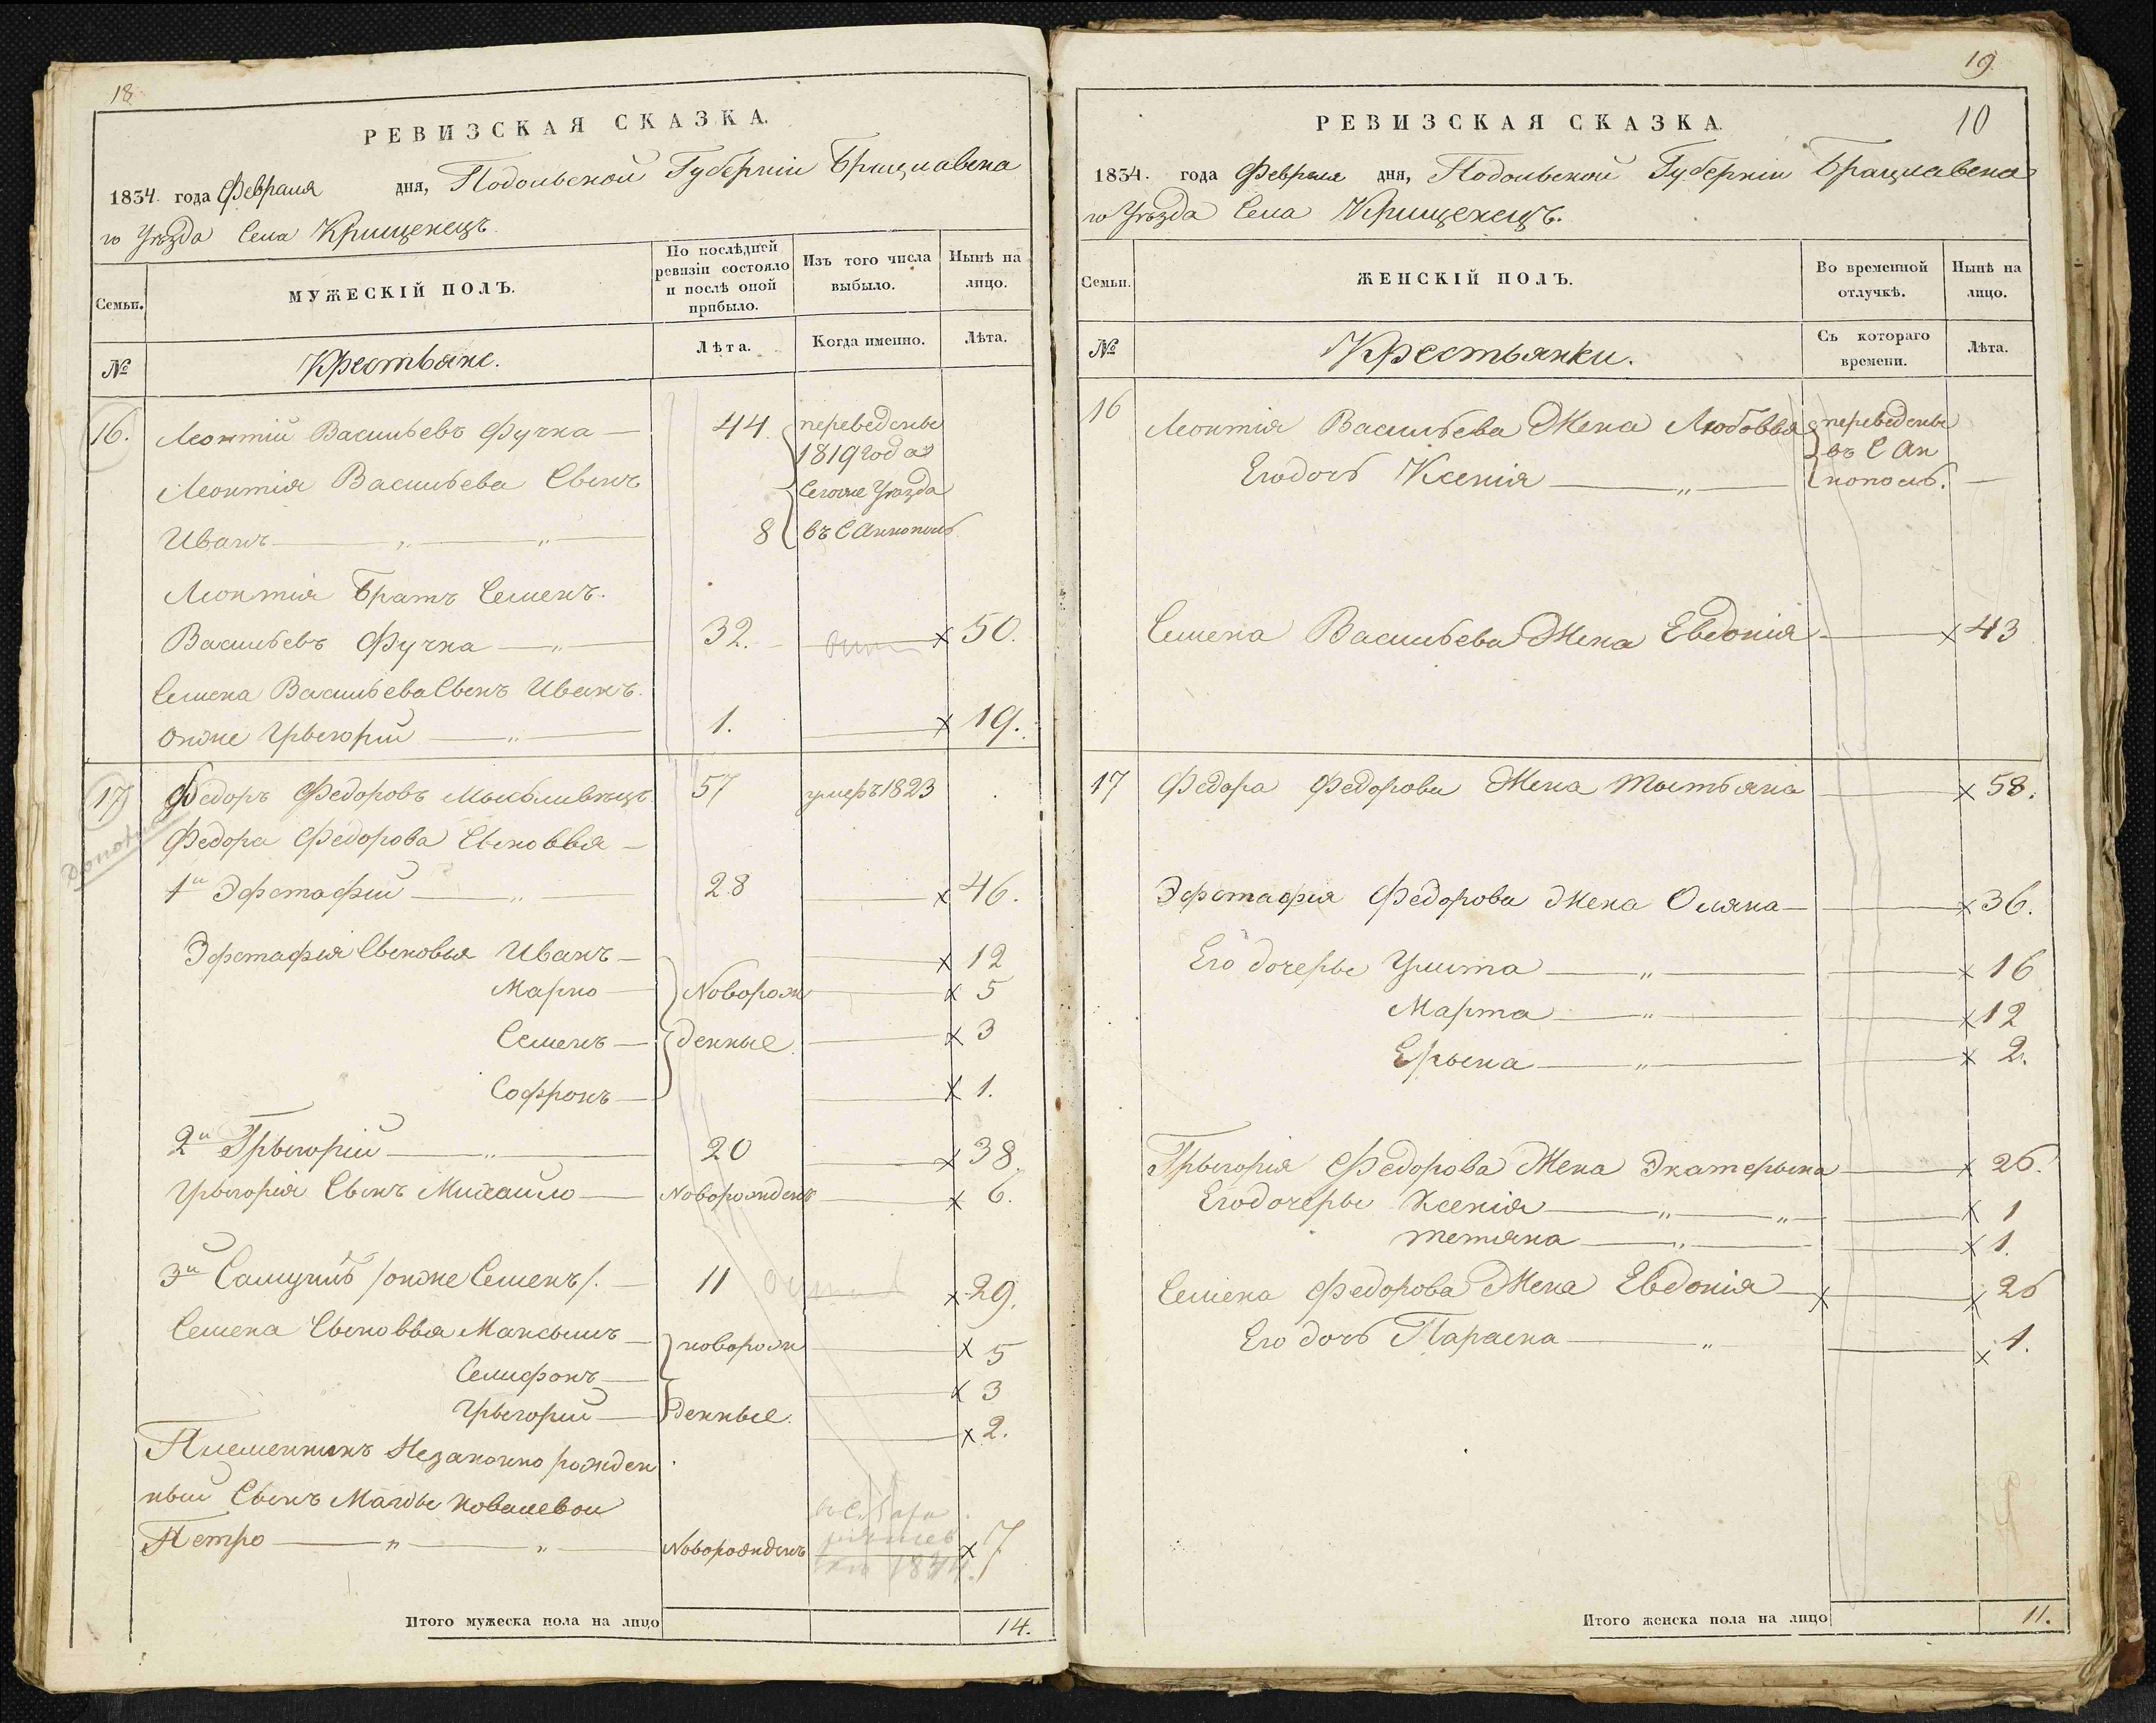 18
РЕВИЗСКАЯ СКАЗКА.
1834. года Февраля дня, Подольской Губерніи Брацлавска
го Уѣзда Села Крищенецъ
Семьи.
МУЖЕСКІЙ ПОЛЪ.
По послѣдней ревизіи состояло и послѣ оной прибыло.
Изъ того числа выбыло.
Нынѣ на лицо.
№
Крестьяне.
Лѣта.
Когда именно.
Лѣта.
16. Леонтій Васильевъ Фучка 44 переведены
1819 года
Леонтія Васильева Сынъ Сегоже Уѣзда
Иванъ 8 въ С Аннополь
Леонтія Братъ Семенъ.
Васильевъ Фучка 32. х 50.
Семена Васильева Сынъ Иванъ.
онже Грыгорій 1. х 19.
17 Федоръ Федоровъ Мысьливѣцъ 57 умеръ 1823
Федора Федорова Сыновья
1й Эфстафій 28 х 46.
Эфстафія Сыновья Иванъ х 12
Марко Новорож х 5
Семенъ денные х 3
Софронъ х 1.
2й Грыгорій 20 х 38.
Грыгорія Сынъ Михайло Новорожденъ х 6.
3й Самуилъ /онже Семенъ/. 11 х 29.
Семена Сыновья Максымъ новорож х 5
Селифонъ х 3
Грыгорій денные. х 2.
Племенникъ Незаконно рожден
ный Сынъ Магды Ковалевой
Петро Новорожденъ х 7
1834.
Итого мужеска пола на лицо 14.
19.
10
РЕВИЗСКАЯ СКАЗКА.
1834. года Февраля дня, Подольской Губерніи Брацлавска
го Уѣзда Села Крищенецъ.
Семьи.
ЖЕНСКІЙ ПОЛЪ.
Во временной отлучкѣ.
Нынѣ на лицо.
№
Крестьянки.
Съ котораго времени.
Лѣта.
16 Леонтія Васильева Жена Любовья переведены
въ С Ан
Его дочь Ксенія нополь.
Семена Васильева Жена Евдокія х 43
17 Федора Федорова Жена Тытьяна х 58.
Эфстафія Федорова Жена Оляна х 36.
Его дочеры Улита х 16
Марта х 12
Ерына х 2.
Грыгорія Федорова Жена Экатерына х 26.
Его дочеры Ксенія х 1
Тетяна х 1.
Семена Федорова Жена Евдокія х х 26
Его дочь Параска х 1.
Итого женска пола на лицо 11.